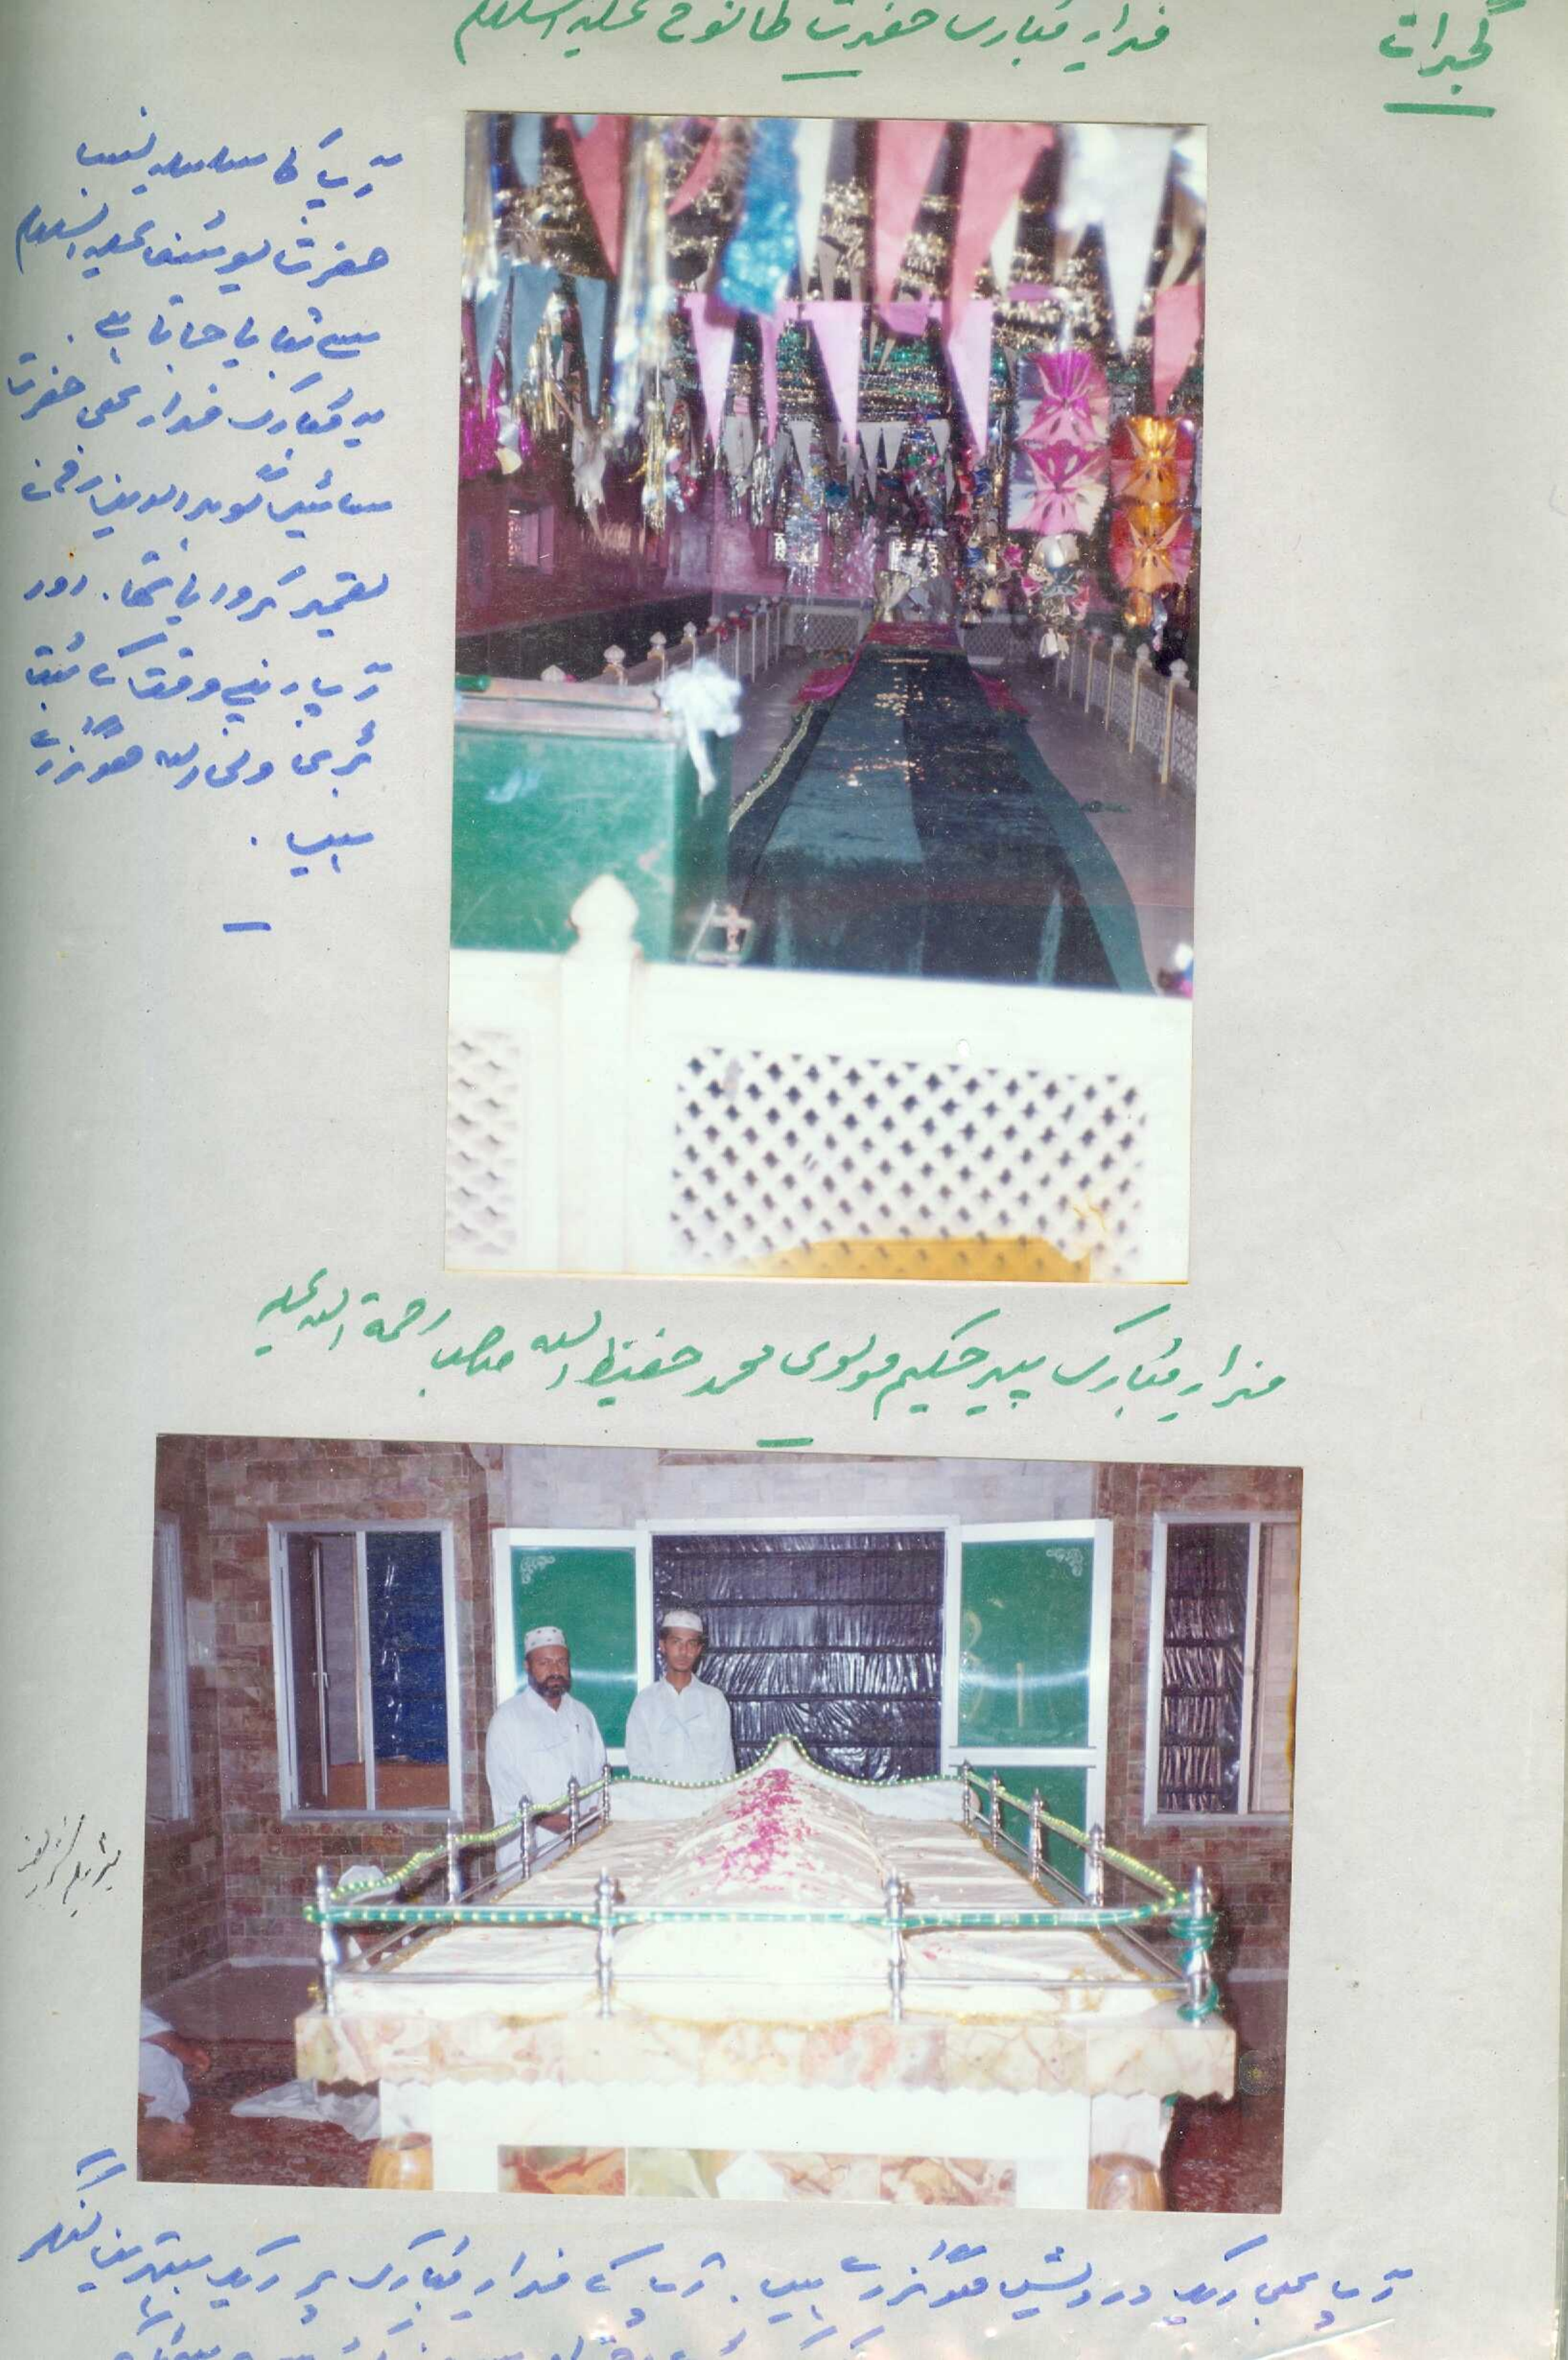 گجرات
مزار مبارک حضرت طانوخ علیہ السلام
آپ کا سلسلہ نسب
حضرت یوسف علیہ السلام
سے بتایا جاتا ہے .
یہ مبارک مزار بھی حضرت
سائیں گوہر الدین نے
تعمیر کروایا تھا . اور
آپ اپنے وقت کے بہت
بڑے ولی اللہ ہو گزرے
ہیں .
مزار مبارک پیر حکیم مولوی محمد حفیظ اللہ صاحب رحمۃ اللہ علیہ
شریف
آپ بھی ایک درویش ہو گزرے ہیں . آپ کے مزار مبارک پر ایک بہترین لنگر